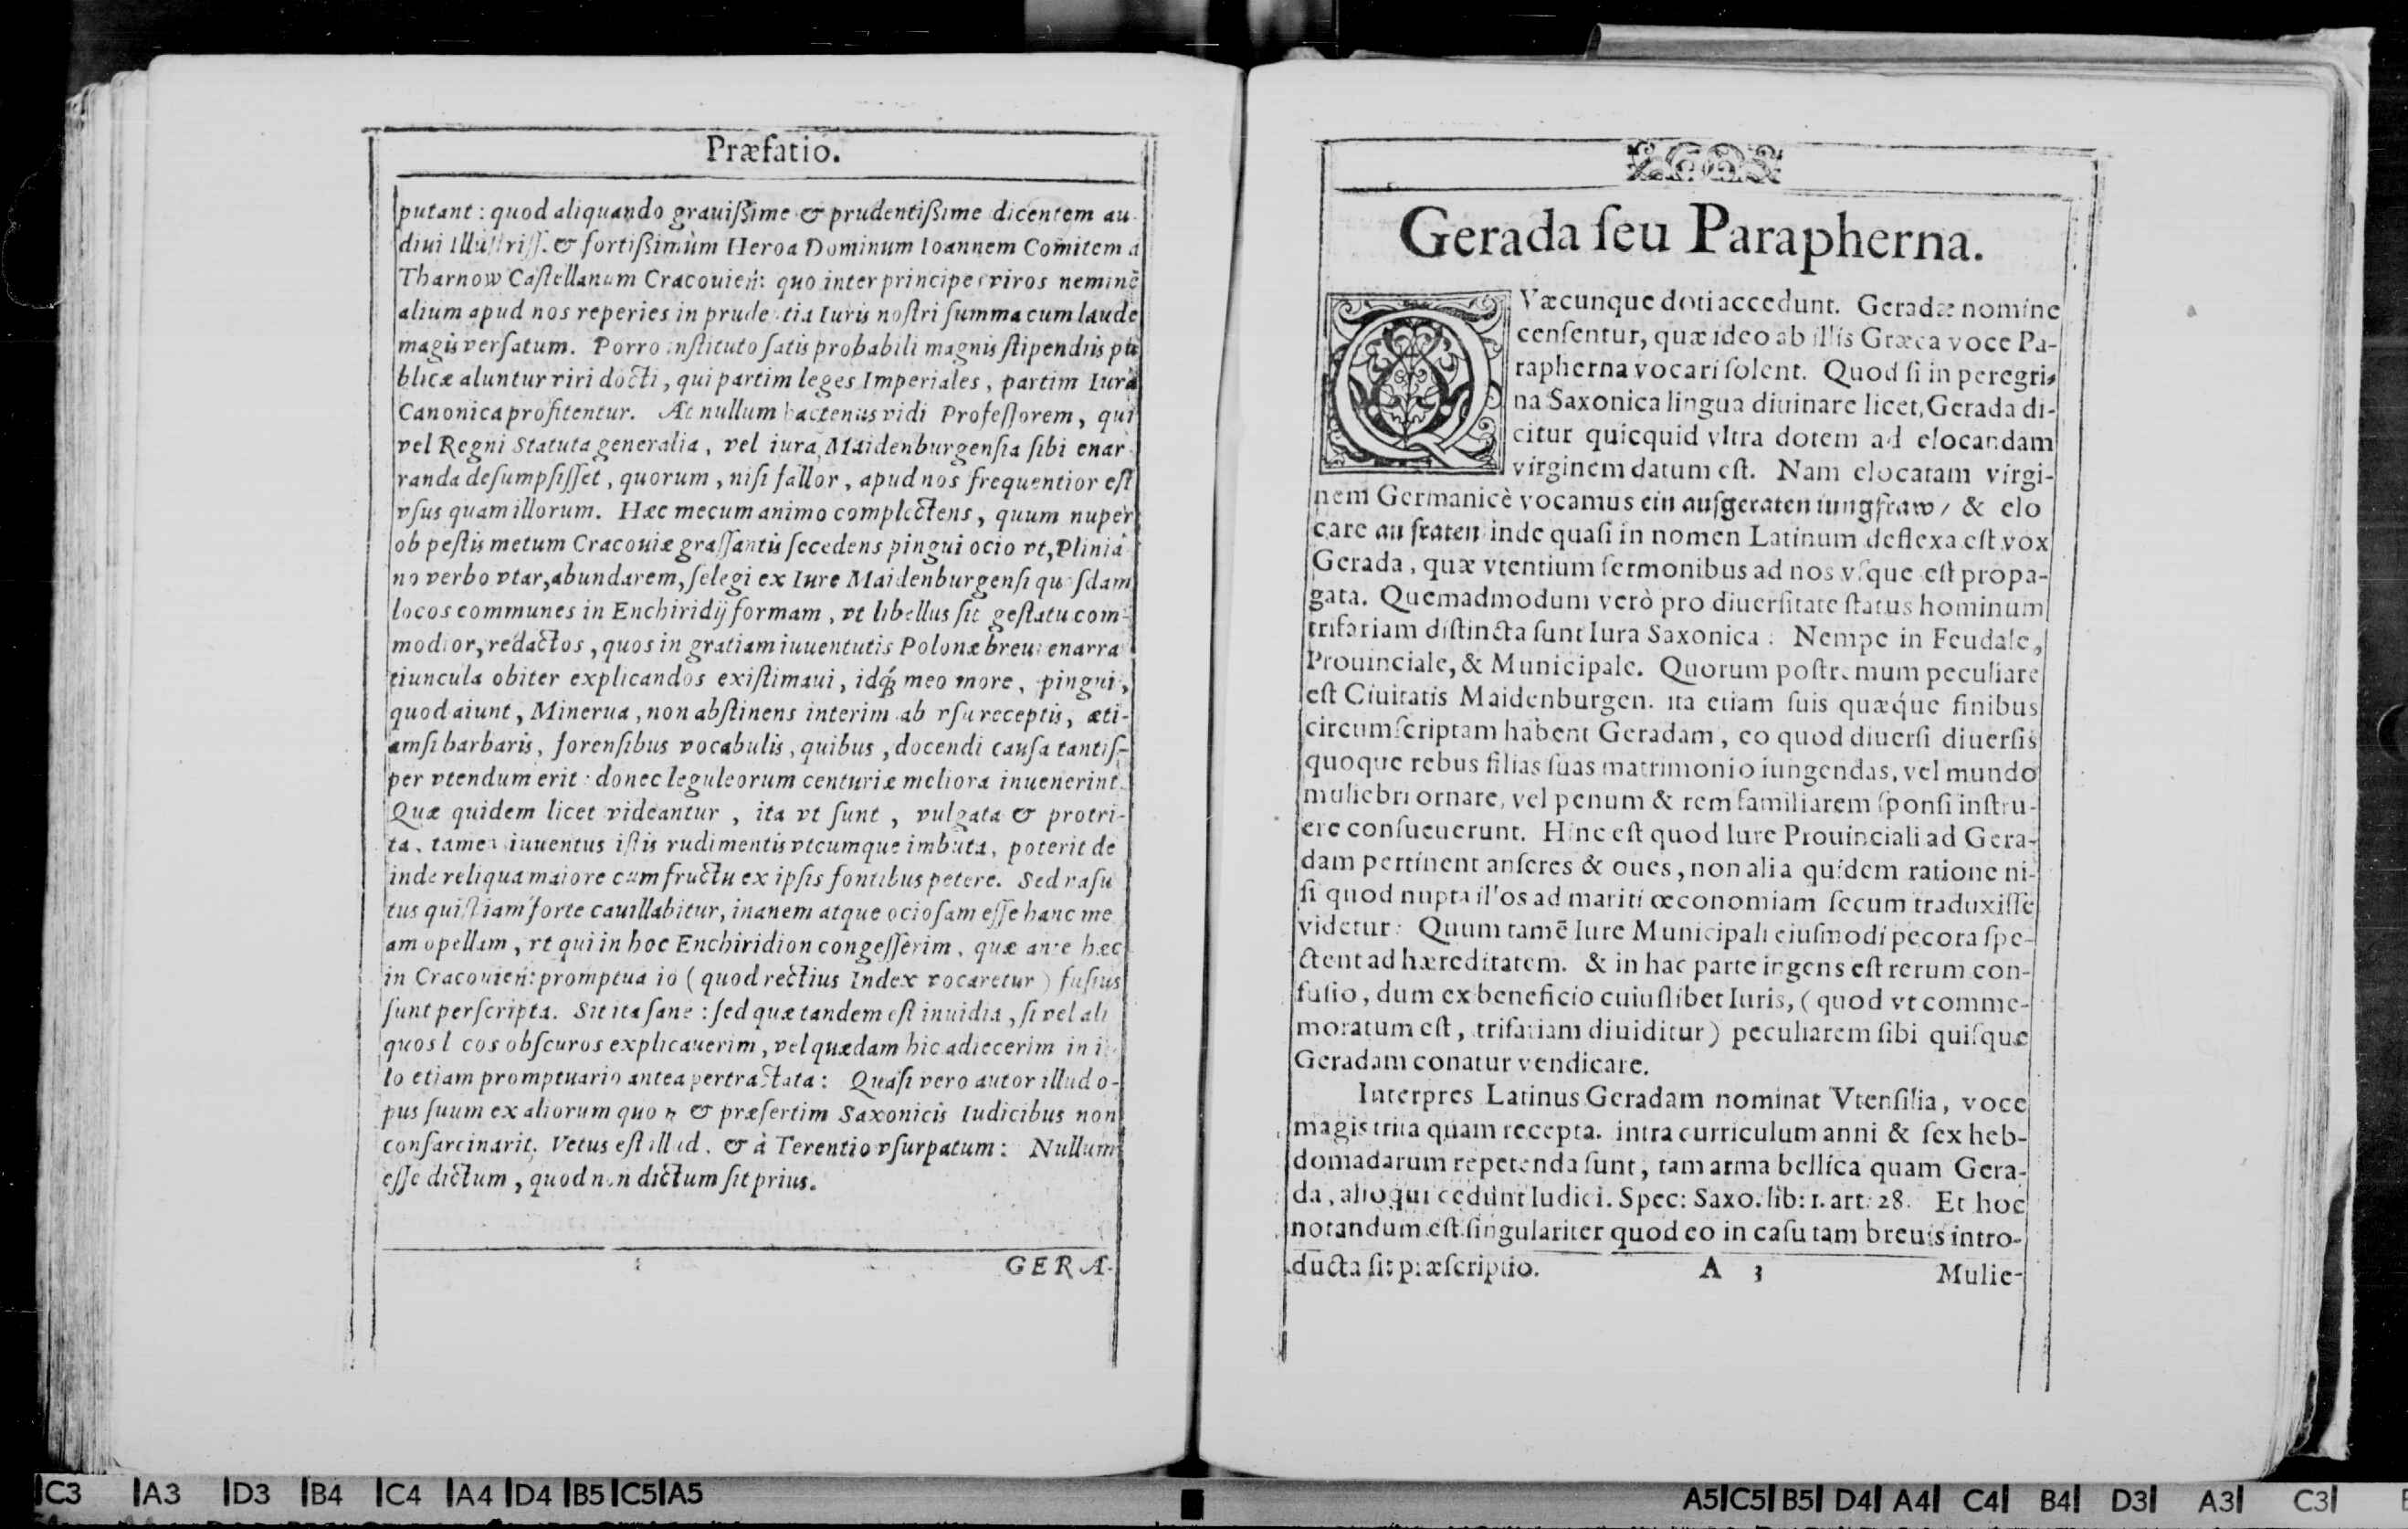 Præfatio.
putant: quod aliquando grauißime & prudentißime dicentem au-
diui Illustriſſ. & fortißimùm Heroa Dominum Ioannem Comitem a
Tharnow Caſtellanum Cracouien̄: quo inter principes viros neminē
alium apud nos reperies in prudētia Iuris noſtri ſumma cum laude
magis verſatum. Porro inſtituto ſatis probabili magnis ſtipendiis pu
blicæ aluntur viri docti, qui partim leges Imperiales, partim Iura
Canonica profitentur. At nullum hactenus vidi Profeſſorem, qui
vel Regni Statuta generalia, vel iura Maidenburgenſia ſibi enar
randa deſumpſiſſet, quorum, niſi fallor, apud nos frequentior eſt
vſus quam illorum. Hæc mecum animo complectens, quum nuper
ob peſtis metum Cracouiæ graſſantis ſecedens pingui ocio vt, Plinia
no verbo vtar, abundarem, ſelegi ex Iure Maidenburgenſi quoſdam
locos communes in Enchiridij formam, vt libellus ſit geſtatu com-
modior, redactos, quos in gratiam iuuentutis Polonæ breui enarra
tiuncula obiter explicandos exiſtimaui, idq́; meo more, pingui,
quod aiunt, Minerua, non abſtinens interim ab vſu receptis, æti-
amſi barbaris, forenſibus vocabulis, quibus, docendi cauſa tantiſ-
per vtendum erit: donec leguleorum centuriæ meliora inuenerint.
Quæ quidem licet videantur, ita vt ſunt, vulgata & protri-
ta, tamen iuuentus iſtis rudimentis vtcumque imbuta, poterit de
inde reliqua maiore cum fructu ex ipſis fontibus petere. Sed naſu
tus quiſpiam forte cauillabitur, inanem atque ocioſam eſſe hanc me
am opellam, vt qui in hoc Enchiridion congeſſerim, quæ ante hæc
in Cracouien̄: promptuario (quod rectius Index vocaretur) fuſius
ſunt perſcripta. Sit ita ſane: ſed quæ tandem eſt inuidia, ſi vel ali
quos locos obſcuros explicauerim, vel quædam hic adiecerim in il
lo etiam promptuario antea pertractata: Quaſi vero autor illud o-
pus ſuum ex aliorum & præſertim Saxonicis Iudicibus non
conſarcinarit. Vetus eſt illud. & à Terentio vſurpatum: Nullum
eſſe dictum, quod non dictum ſit prius.
GERA-
Gerada ſeu Parapherna.
QVæcunque doti accedunt. Geradæ nomine
cenſentur, quæ ideo ab illis Græca voce Pa-
rapherna vocari ſolent. Quod ſi in peregri-
na Saxonica lingua diuinare licet, Gerada di-
citur quicquid vltra dotem ad elocandam
virginem datum eſt. Nam elocatam virgi-
nem Germanicè vocamus ein auſgeraten iungfraw/ & elo
care au ſraten inde quaſi in nomen Latinum deflexa eſt vox
Gerada, quæ vtentium ſermonibus ad nos vſque eſt propa-
gata. Quemadmodum verò pro diuerſitate ſtatus hominum
trifariam diſtincta ſunt Iura Saxonica: Nempe in Feudale,
Prouinciale, & Municipale. Quorum poſtremum peculiare
eſt Ciuitatis Maidenburgen. ita etiam ſuis quæq́ue finibus
circumſcriptam habent Geradam, eo quod diuerſi diuerſis
quoque rebus filias ſuas matrimonio iungendas, vel mundo
muliebri ornare, vel penum & rem familiarem ſponſi inſtru-
ere conſueuerunt. Hinc eſt quod Iure Prouinciali ad Gera-
dam pertinent anſeres & oues, non alia quidem ratione ni-
ſi quod nupta illos ad mariti œconomiam ſecum traduxiſſe
videtur: Quum tamē Iure Municipali eiuſmodi pecora ſpe-
ctent ad hæreditatem. & in hac parte ingens eſt rerum con-
fuſio, dum ex beneficio cuiuſlibet Iuris, (quod vt comme-
moratum eſt, trifariam diuiditur) peculiarem ſibi quiſque
Geradam conatur vendicare.
Interpres Latinus Geradam nominat Vtenſilia, voce
magis trita quam recepta. intra curriculum anni & ſex heb-
domadarum repetenda ſunt, tam arma bellica quam Gera-
da, alioqui cedunt Iudici. Spec: Saxo. lib: 1. art: 28. Et hoc
notandum eſt ſingulariter quod eo in caſu tam breuis intro-
ducta ſit præſcriptio. A 3 Mulie-
C3 A3 D3 B4 C4 A4 D4 B5 C5 A5
A5 C5 B5 D4 A4 C4 B4 D3 A3 C3